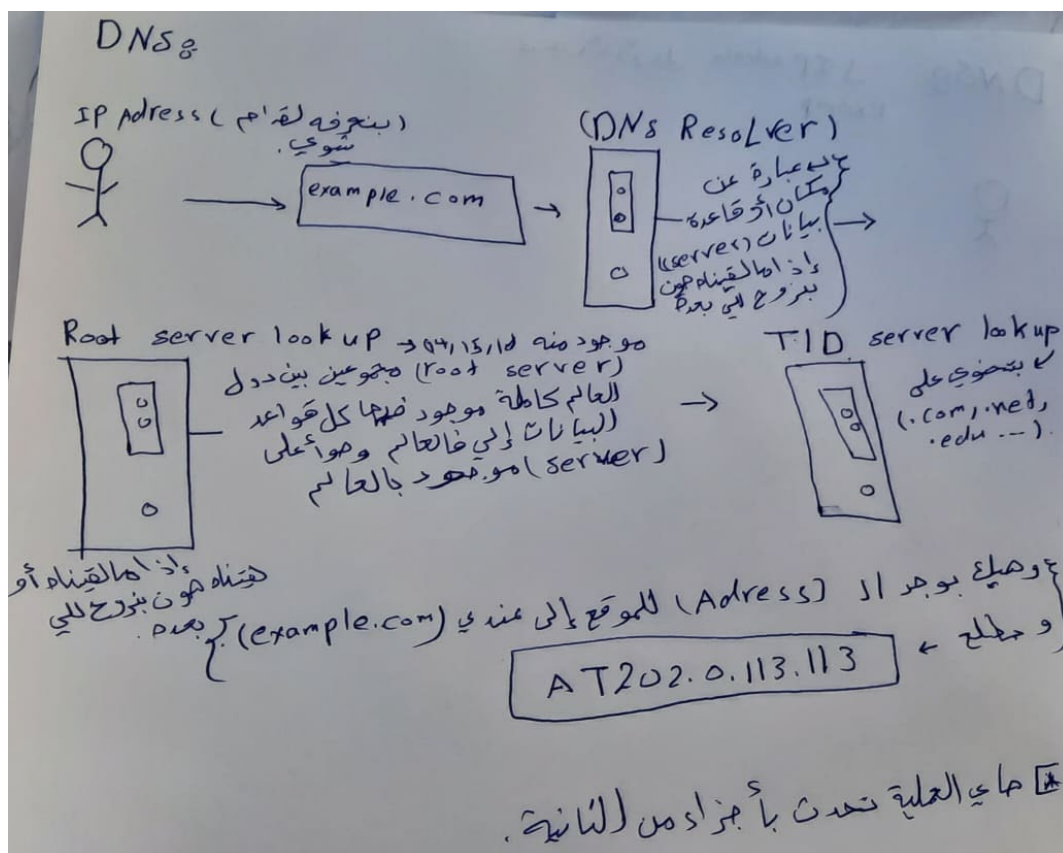 DNS:
IP Adress (بنعرفه لقدام
شوي.)
example.com
(DNS Resolver)
عبارة عن
مكان أو قاعدة
بيانات (server)
إذا ما لقيناه هون
بنروح للي بعده
Root server lookup → موجود منه
(root server) مجموعين بين دول
العالم كاملة موجود فيها كل قواعد
البيانات إلي فالعالم وهو أعلى
(server) موجود بالعالم
إذا ما لقيناه أو
هون بنروح للي
بعده.
TID server lookup
بتحتوي على
(.com, .net,
.edu ---).
وهيك بوجد الـ (Adress) للموقع إلى عندي (example.com)
و بطلع ←
AT202.0.113.113
* هاي العملية تحدث بأجزاء من الثانية.